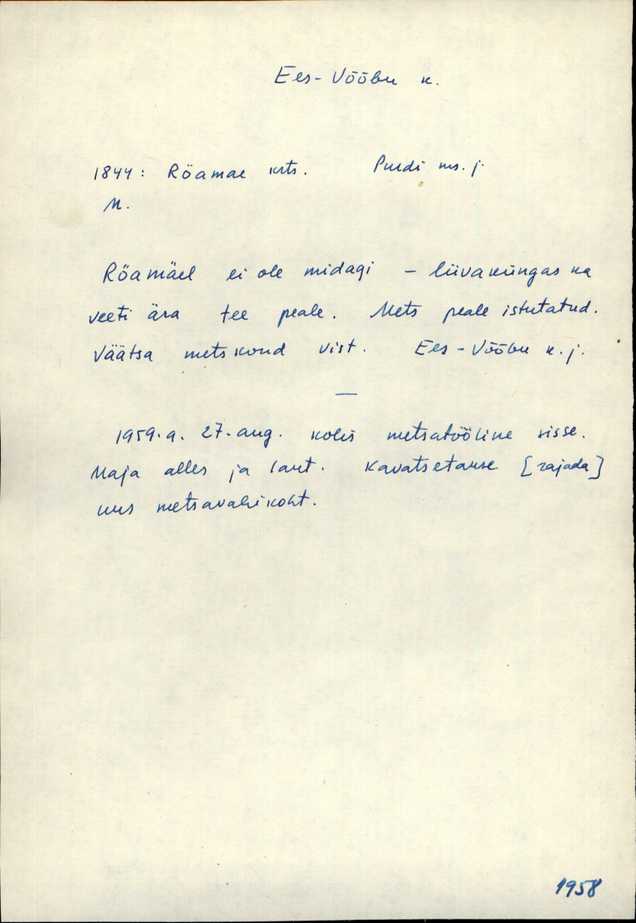 Ees-Vööbu k.
1844: Röamae krts. Purdi ms. j.
M.
Röamäel ei ole midagi - liivaküngas ka
veeti ära tee peale. Mets peale istutatud.
Väätsa metskond vist. Ees-Vööbu k.j.
—
1959.a. 27. aug. kolis metsatööline sisse.
Maja alles ja laut. Kavatsetakse [rajada]
uus metsavahikoht.
1958